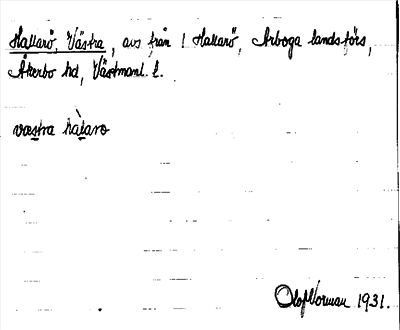 Hallarö, Västra, avs. från 1 Hallarö, Arboga landsförs,
Åkerbo hd, Västmanl. l.
væstra hàlarω
Olof Norman 1931.